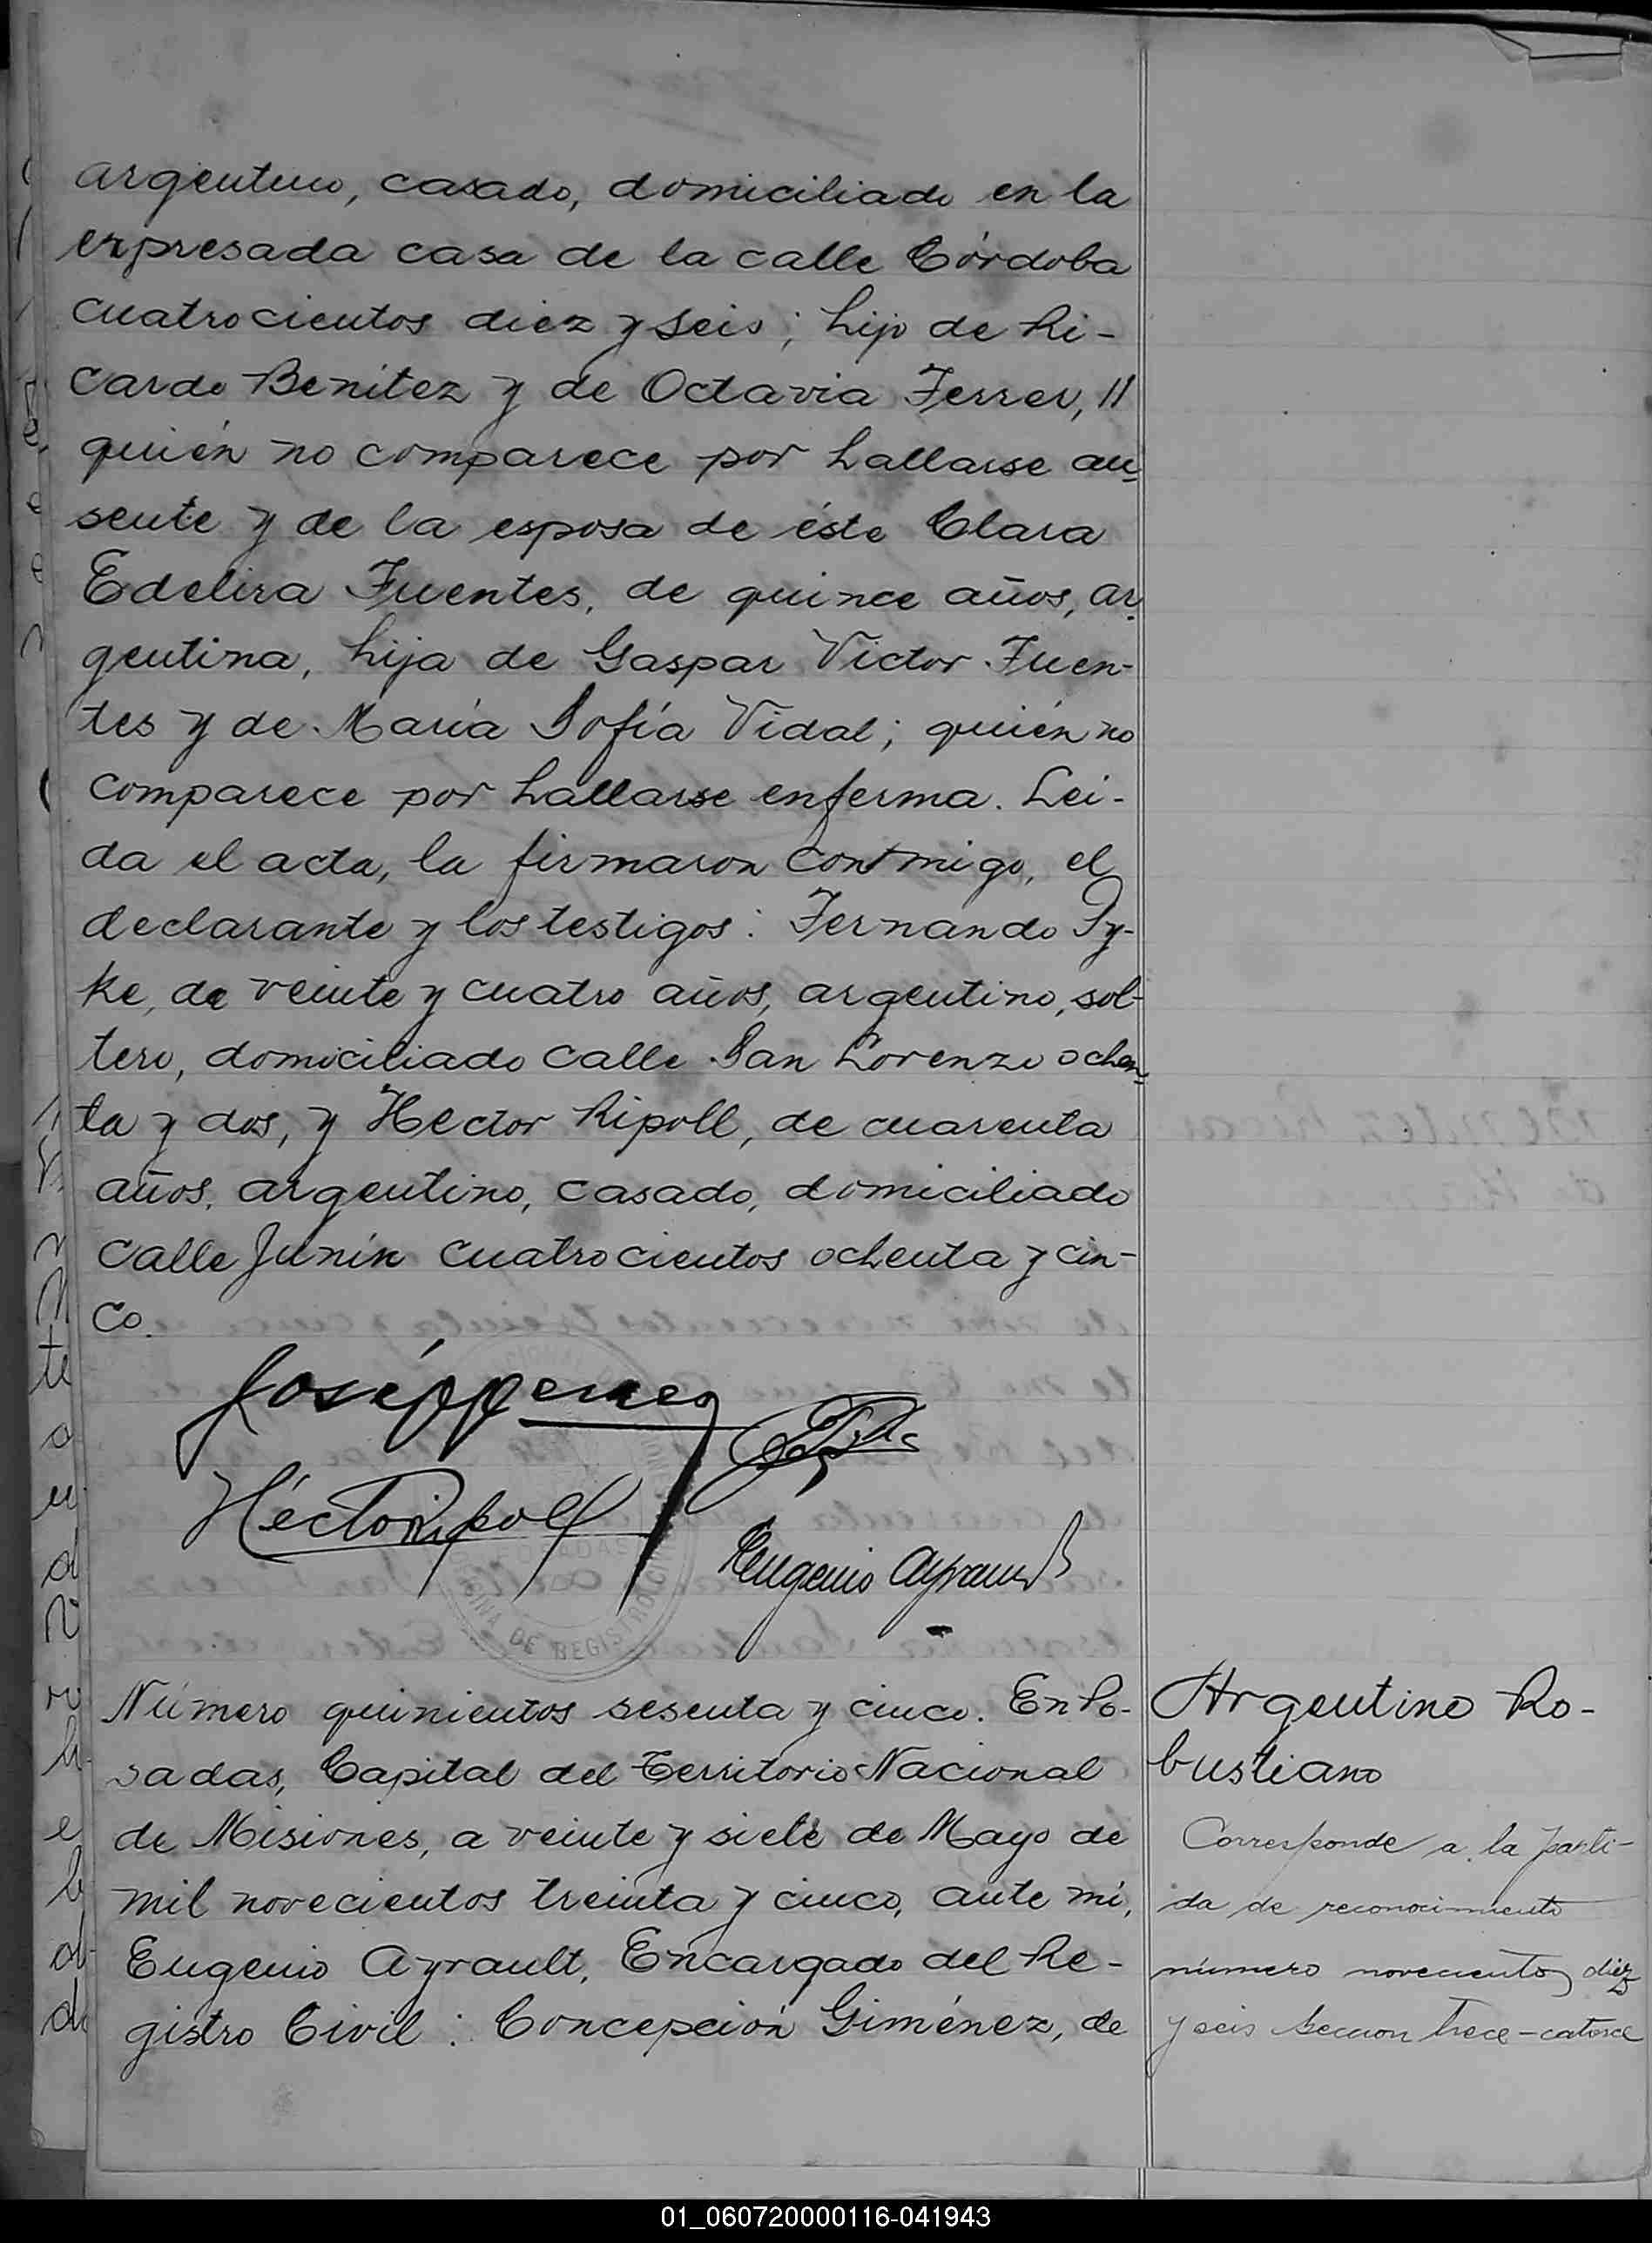 argentino, casado, domiciliado en la
expresada casa de la calle Córdoba
cuatrocientos diez y seis; hijo de Ri-
cardo Benitez y de Octavia Ferrer, //
quién no comparece por hallarse au-
sente y de la esposa de éste Clara
Edelira Fuentes, de quince años, ar-
gentina, hija de Gaspar Victor Fuen-
tes y de María Sofía Vidal; quién no
comparece por hallarse enferma. Lei-
da el acta, la firmaron conmigo, el
declarante y los testigos: Fernando Ty-
ke, de veinte y cuatro años, argentino, sol-
tero, domiciliado calle San Lorenzo ochen-
ta y dos, y Hector Ripoll, de cuarenta
años, argentino, casado, domiciliado
calle Junín cuatrocientos ochenta y cin-
co.
Héctor Ripoll
Eugenio Ayrault
POSADAS
OFICINA DE REGISTRO CIVIL
Número quinientos sesenta y cinco. En Po-
sadas, Capital del Territorio Nacional
de Misiones, a veinte y siete de Mayo de
mil novecientos treinta y cinco, ante mí,
Eugenio Ayrault, Encargado del Re-
gistro Civil: Concepción Giménez, de
Argentino Ro-
bustiano
Corresponde a la parti-
da de reconocimiento
número novecientos diez
y seis Seccion trece-catorce
01_060720000116-041943